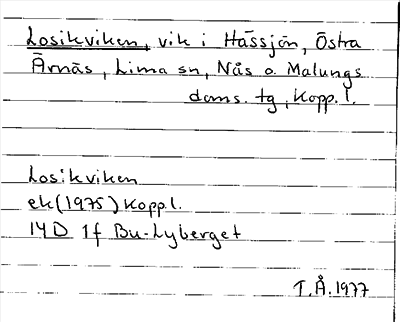 Losikviken, vik i Hässjön, Östra
Ärnäs, Lima sn, Nås o. Malungs
doms. tg, Kopp. l.
Losikviken
ek (1975) Kopp l.
14D 1f Bu-Lyberget
T.Å. 1977